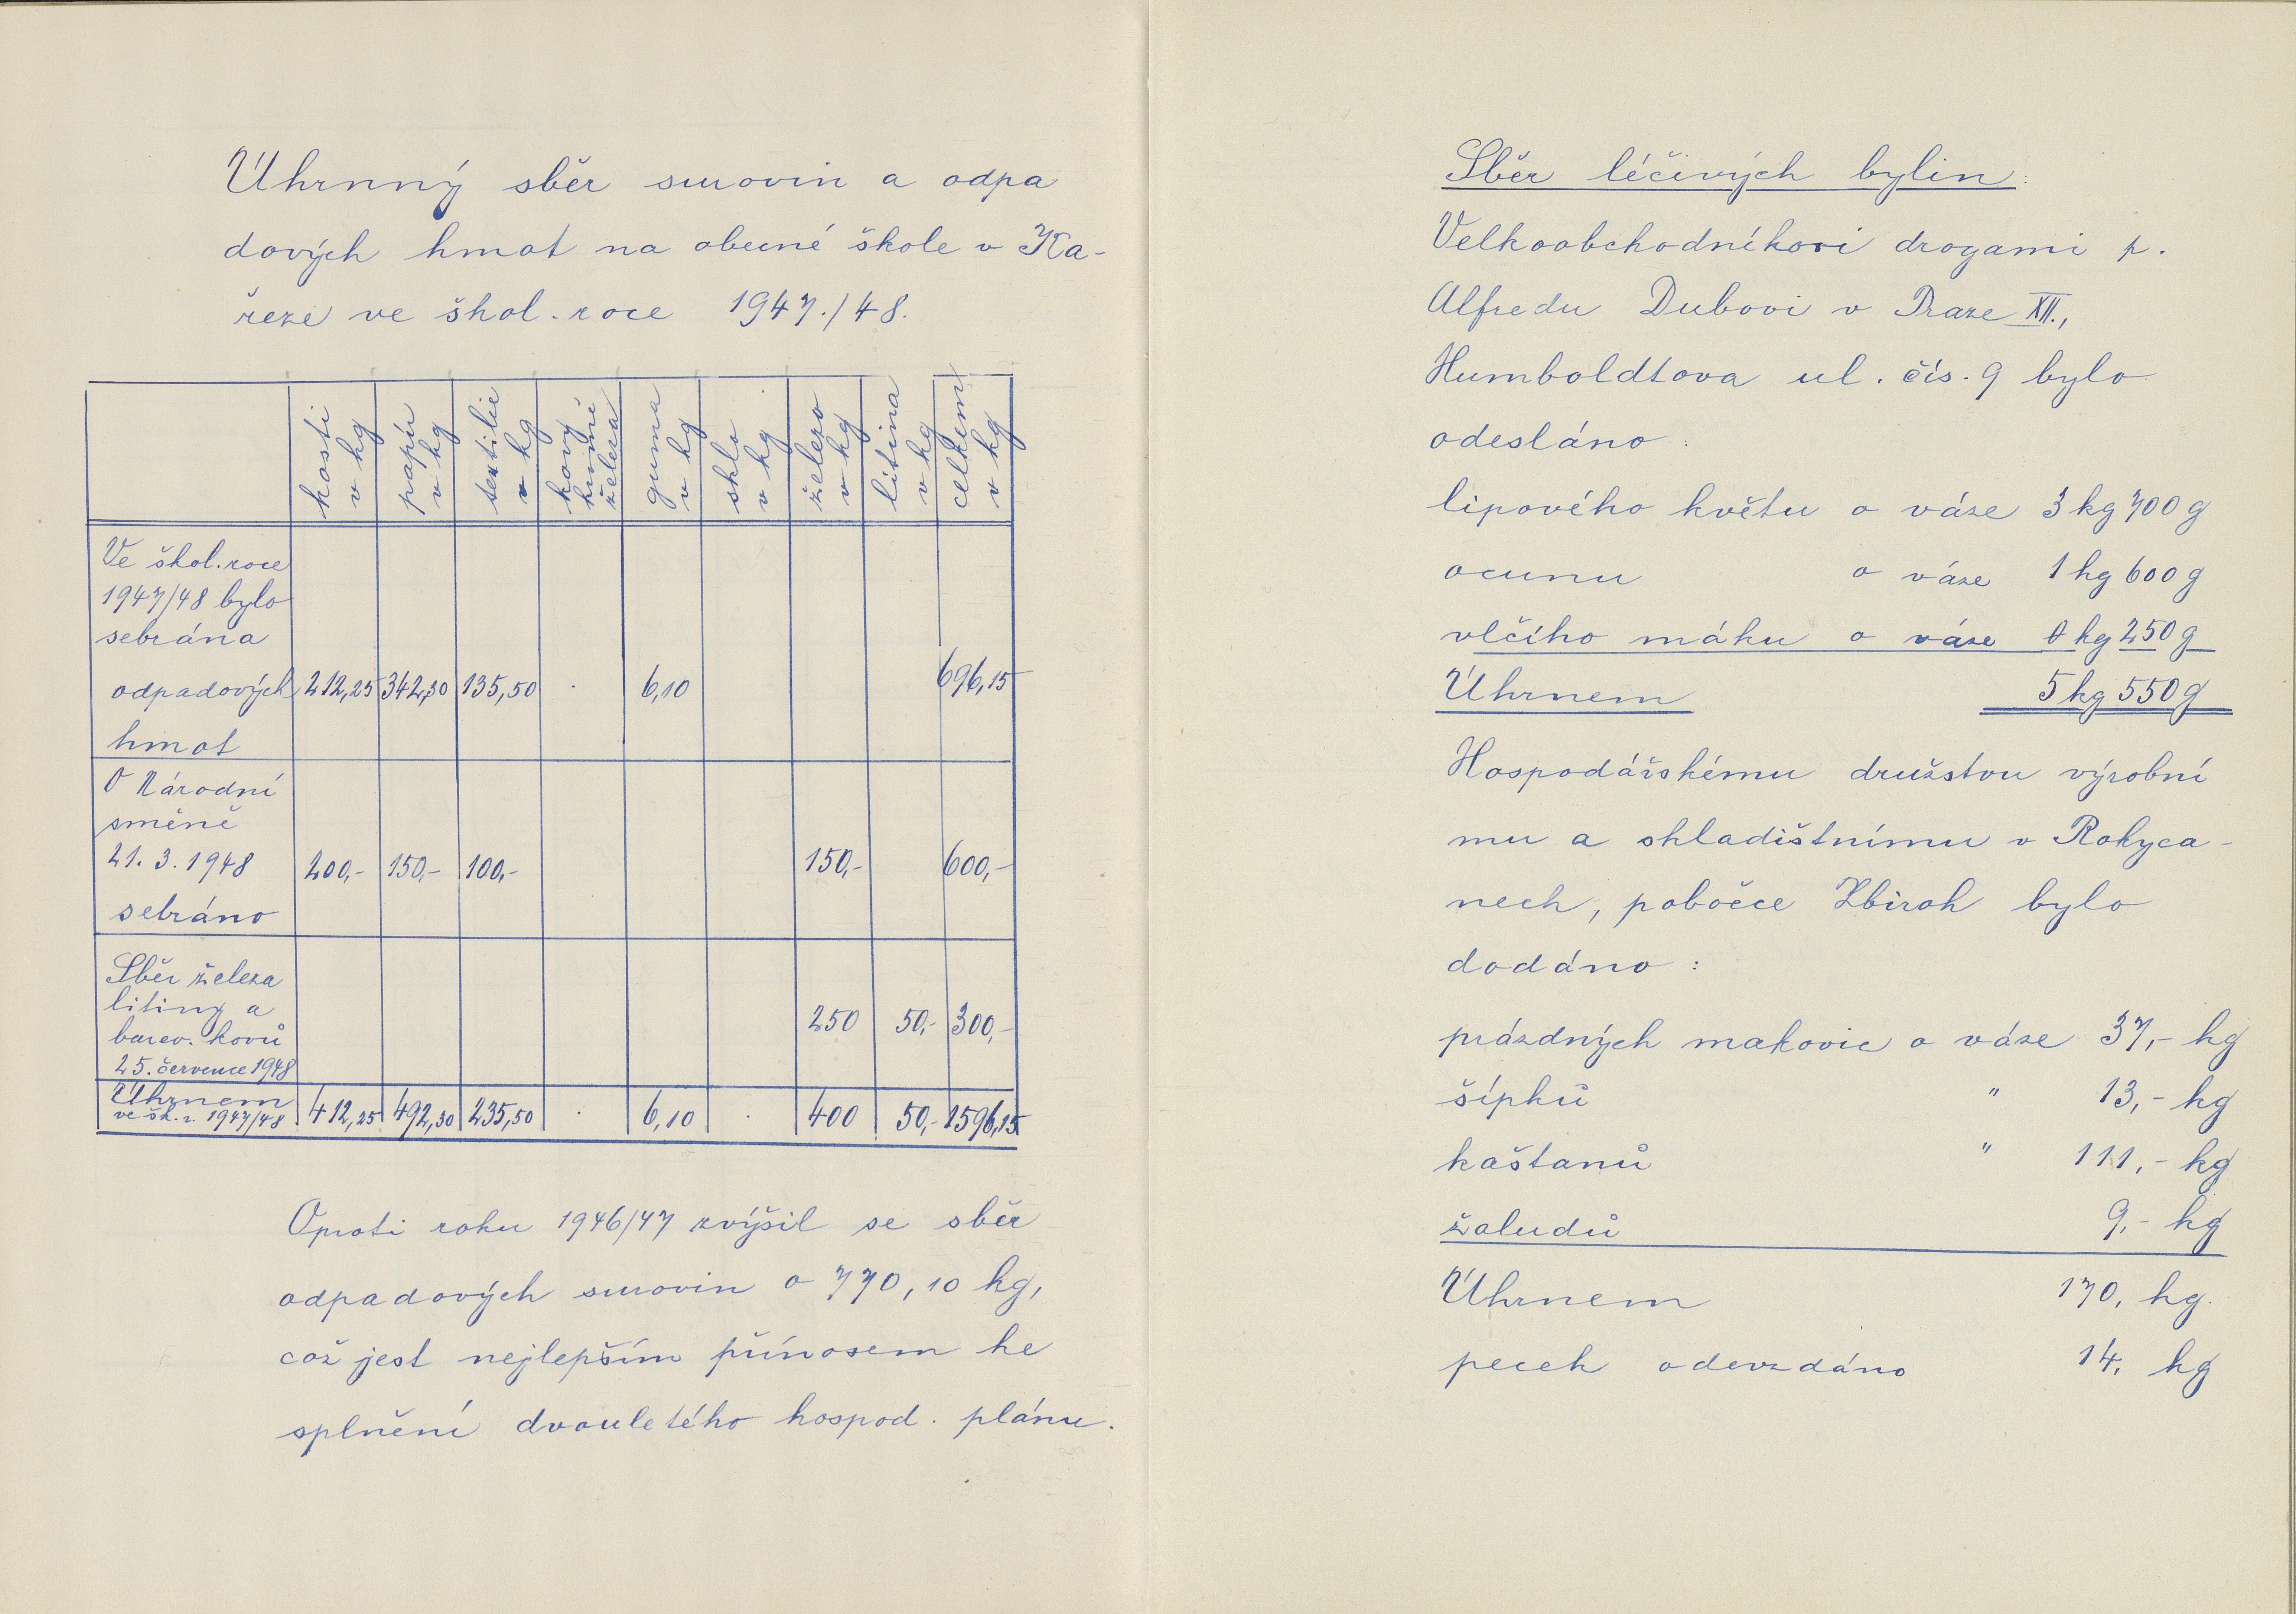 Úhrnný sběr surovin a odpa
dových hmot na obecné škole v Ka-
řeze ve škol. roce 1947./48.
kosti v kg papír v kg textilie v kg kovy kromě železa guma v kg sklo v kg železo v kg litina v kg celkem v kg
Ve škol. roce
1947/48 bylo
sebrána
odpadových 212,25 342,30 135,50 . 6,10 696,15
hmot
O Národní
směně
21. 3. 1948 200,- 150,- 100,- 150,- 600,-
sebráno
Sběr železa
litiny a
barev. kovů 250 50,- 300,-
25. července 1948
Úhrnem
ve šk. r. 1947/48 412,25 492,30 235,50 . 6,10 . 400 50,- 1596,15
Oproti roku 1946/47 zvýšil se sběr
odpadových surovin o 770,10 kg,
což jest nejlepším přínosem ke
splnění dvouletého hospod. plánu.
Sběr léčivých bylin:
Velkoobchodníkovi drogami p.
Alfredu Dubovi v Praze XII.,
Humboldtova ul. čís. 9 bylo
odesláno:
lipového květu o váze 3 kg 700 g
ocunu o váze 1 kg 600 g
vlčího máku o váze 0 kg 250 g
Úhrnem 5 kg 550 g
Hospodářskému družstvu výrobní
mu a skladištnímu v Rokyca-
nech, pobočce Zbiroh bylo
dodáno:
prázdných makovic o váze 37,- kg
šípků " 13,- kg
kaštanů " 111,- kg
žaludů 9,- kg
Úhrnem 170, kg.
pecek odevzdáno 14, kg